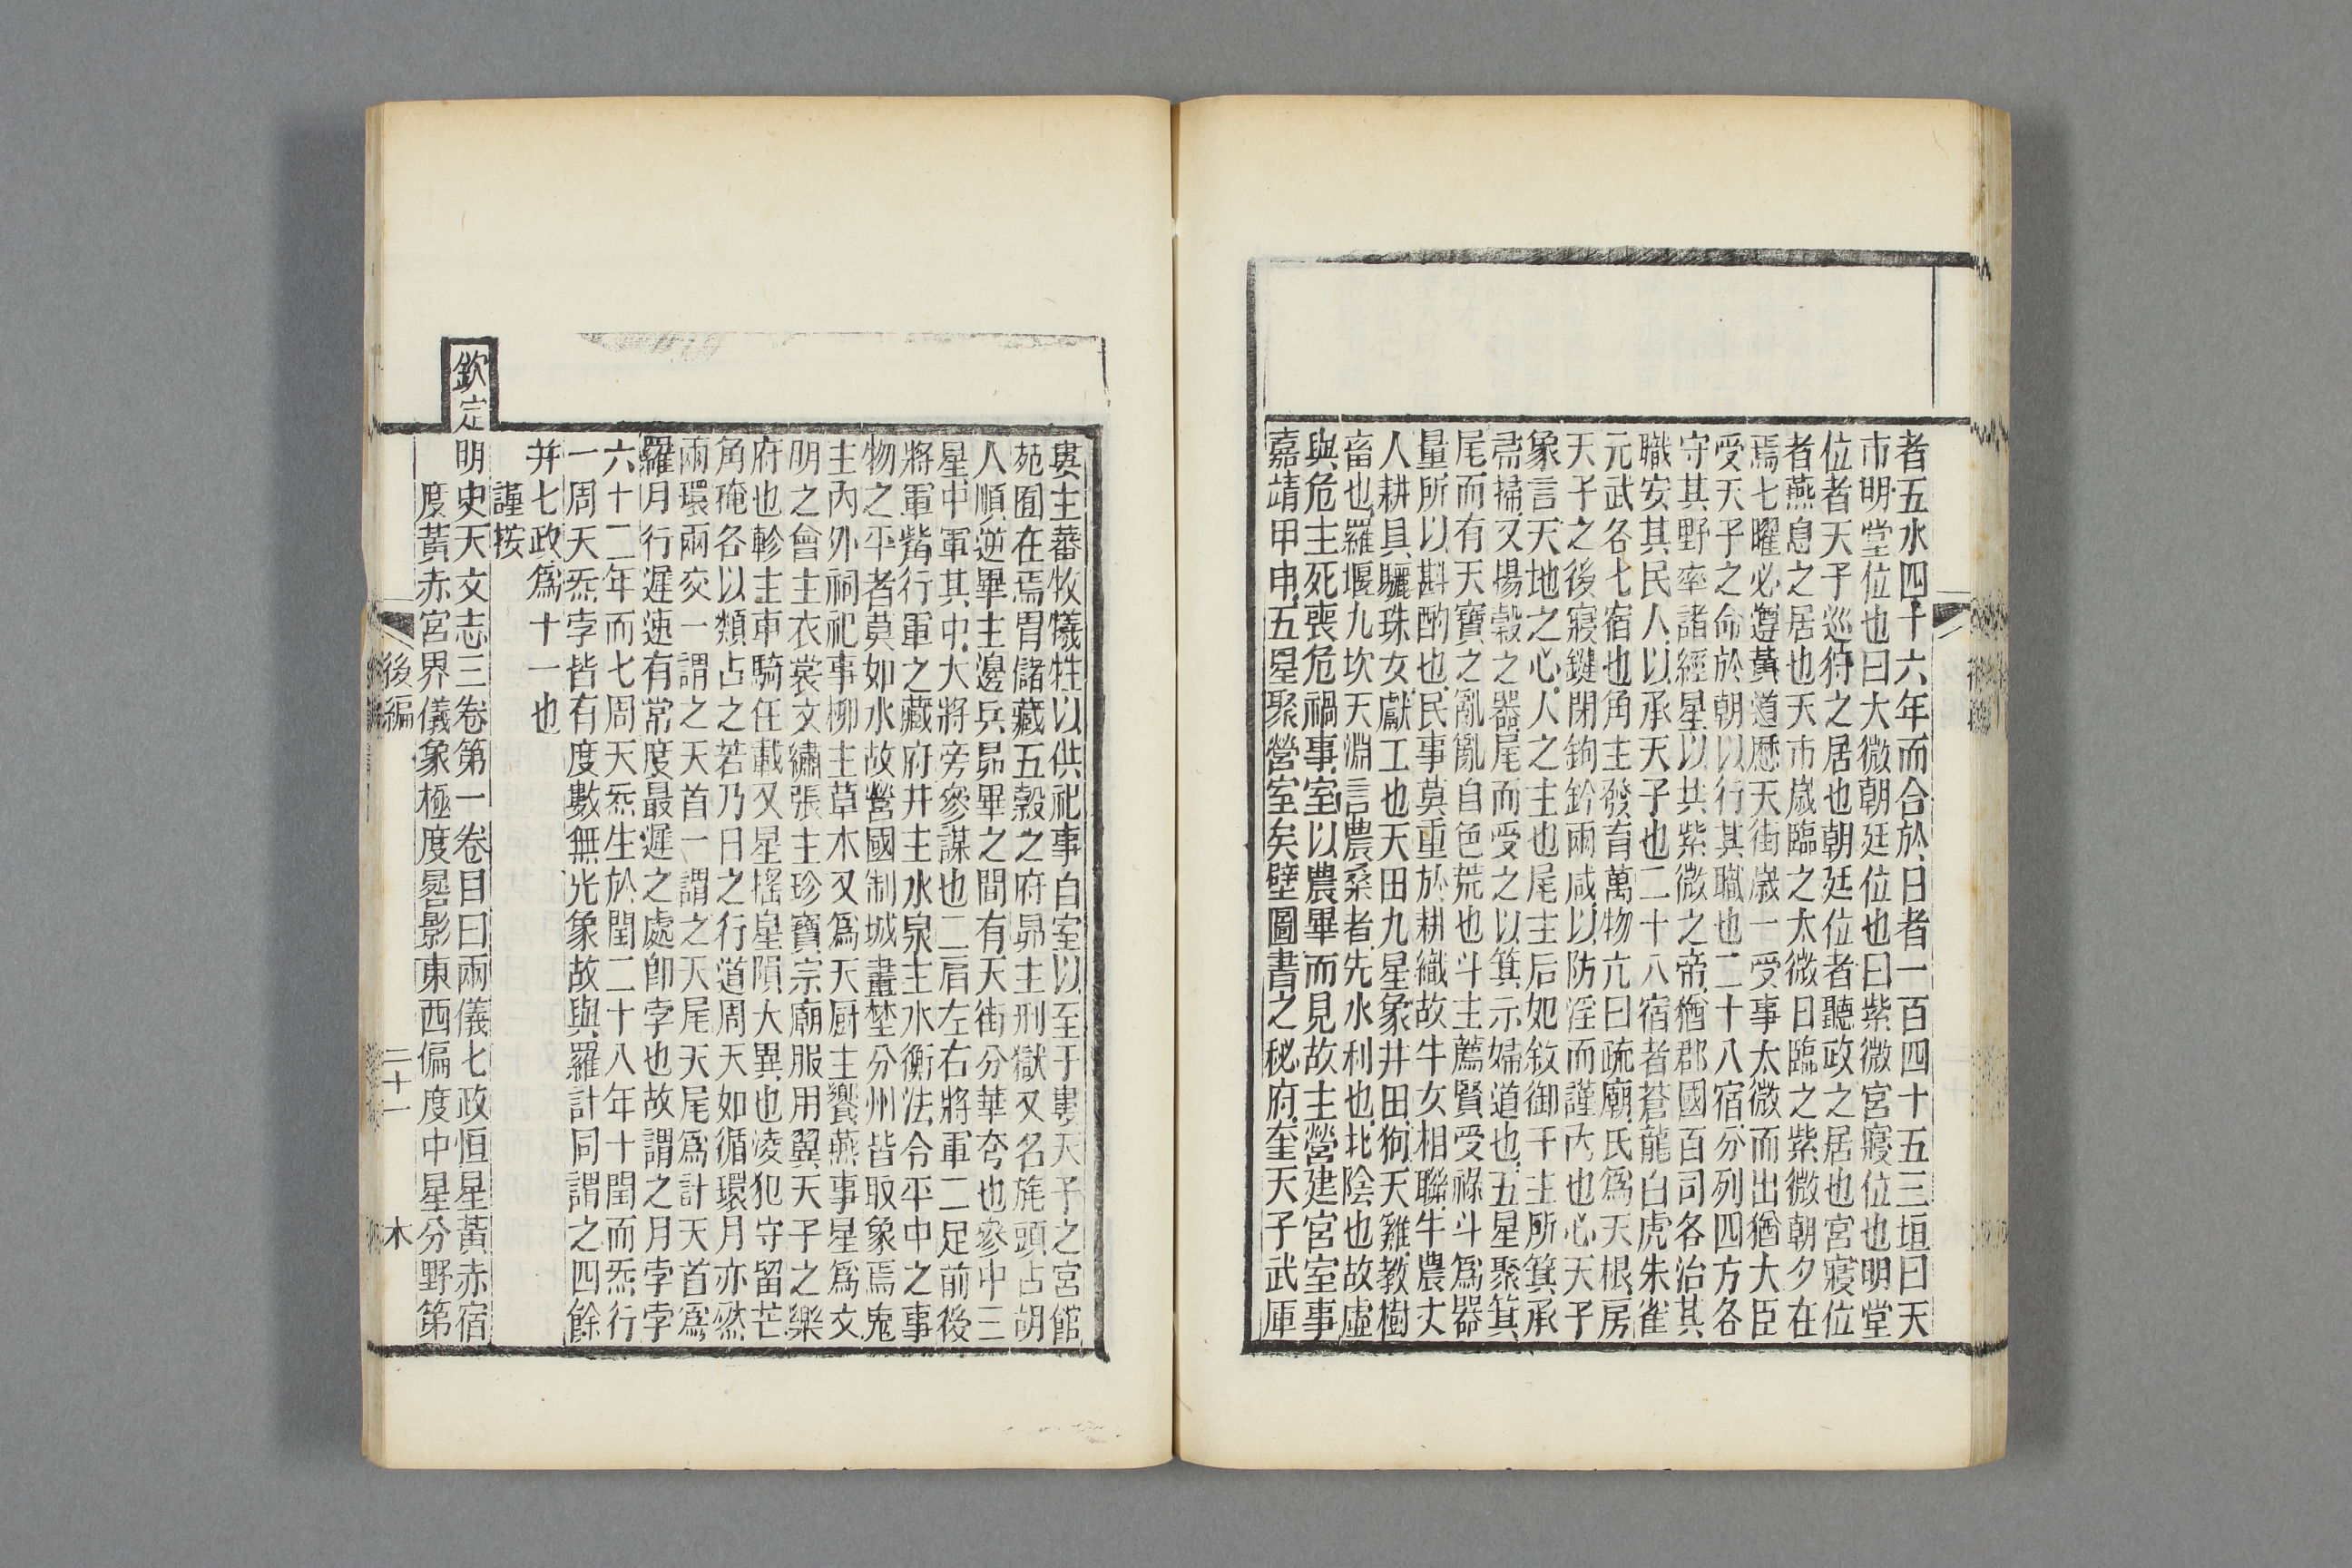 者五水四十六年而合於日者一百四十五三垣曰天
市明堂位也曰大微朝廷位也曰紫微宮寢位也明堂
位者天子巡狩之居也朝廷位者聽政之居也宮寢位
者燕息之居也天市歲臨之太微日臨之紫微朝夕在
焉七曜必遵黃道歷天街歲一受事太微而出猶大臣
受天子之命於朝以行其職也二十八宿分列四方各
守其野率諸經星以共紫微之帝猶郡國百司各治其
職安其民人以承天子也二十八宿者蒼龍白虎朱雀
元武各七宿也角主發育萬物亢曰疏廟氐爲天根房
天子之後寢鍵閉鉤鈐雨咸以防淫而謹內也心天子
象言天地之心人之主也尾主后妃敘御干主所箕承
帚掃又揚穀之器尾而受之以箕示婦道也五星聚箕
尾而有天寶之亂亂自色荒也斗主薦賢受祿斗爲器
量所以斟酌也民事莫重於耕織故牛女相聯牛農丈
人耕具驪珠女獻工也天田九星象井田狗天雞教樹
畜也羅堰九坎天淵言農桑者先水利也北陰也故虛
與危主死喪危禍事室以農畢而見故主營建宮室事
嘉靖甲申五星聚營室矣壁圖書之秘府奎天子武庫
婁主蕃牧犧牲以供祀事自室以至于婁天子之宮館
苑囿在焉胃儲藏五穀之府昴主刑獄又名旄頭占胡
人順逆畢主邊兵昴畢之間有天街分華夸也參中三
星中軍其中大將旁參謀也二肩左右將軍二足前後
將軍觜行軍之藏府井主水泉主水衡法令平中之事
物之平者莫如水故營國制城畫埜分州皆取象焉鬼
主內外祠祀事柳主草木又爲天厨主饗燕事星爲文
明之會主衣裳文繡張主珍寶宗廟服用翼天子之樂
府也軫主車騎任載又星搖星隕大異也淩犯守留芒
角掩各以類占之若乃日之行道周天如循環月亦然
兩環兩交一謂之天首一謂之天尾天尾爲計天首爲
羅月行遲速有常度最遲之處卽孛也故謂之月孛孛
六十二年而七周天炁生於閏二十八年十閏而炁行
一周天炁孛皆有度數無光象故與羅計同謂之四餘
并七政爲十一也
謹按
欽定明史天文志三卷第一卷目曰兩儀七政恒星黃赤宿
度黃赤宮界儀象極度晷影東西偏度中星分野第
後編 二十一 木